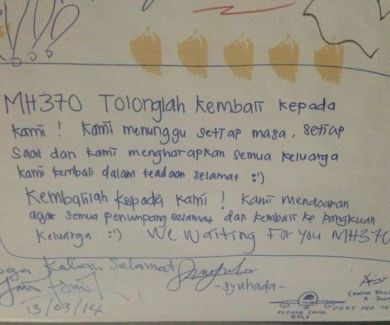 MH370 Tolonglah kembali kepada
kami! Kami menunggu setiap masa, setiap
saat dan kami mengharapkan semua keluarga
kami kembali dalam keadaan selamat :')
Kembalilah kepada kami! Kami mendoakan
agar semua penumpang selamat dan kembali ke pangkuan
keluarga :') We Waiting For you MH370
Kalian Selamat
-syuhada-
13/03/14
PLEASE COME
BACK
PRAY FOR